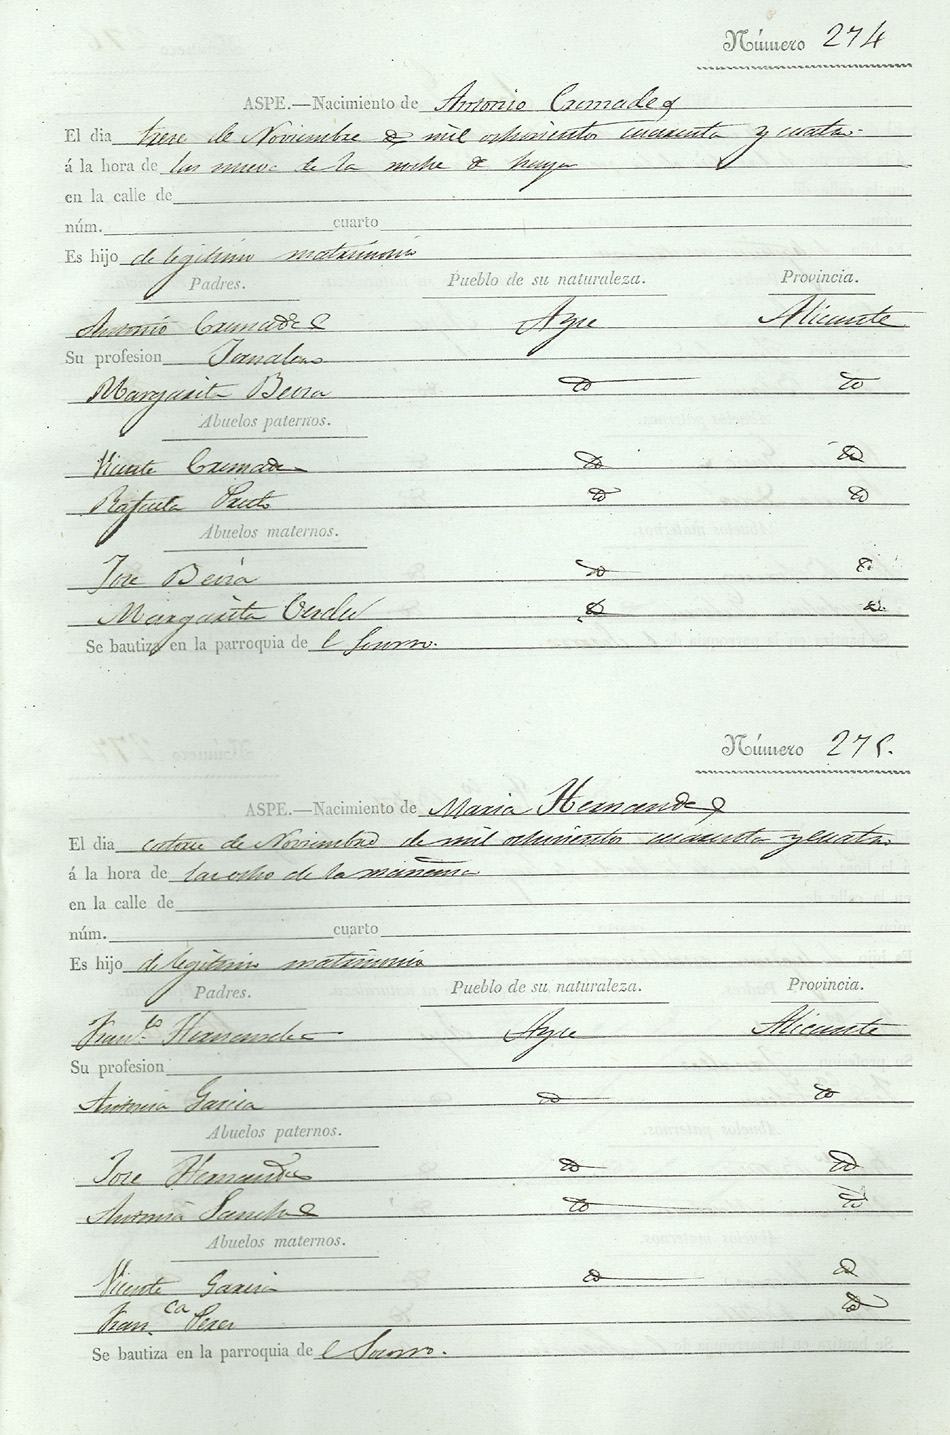 Número 274
ASPE.—Nacimiento de Antonio Cremades
El dia trece de Noviembre de mil ochocientos cuarenta y cuatro
á la hora de las nueve de la noche de
en la calle de
núm. cuarto
Es hijo de legitimo matrimonio
Padres. Pueblo de su naturaleza. Provincia.
Antonio Cremades Aspe Alicante
Su profesion Jornalero
Margarita Beviá id id
Abuelos paternos.
Vicente Cremades id id
Rafaela Prieto id id
Abuelos maternos.
Jose Beviá id id
Margarita Verdu id id
Se bautiza en la parroquia de el Socorro.
Número 275.
ASPE.—Nacimiento de Maria Hernandez
El dia catorce de Noviembre de mil ochocientos cuarenta y cuatro
á la hora de las ocho de la mañana
en la calle de
núm. cuarto
Es hijo de legitimo matrimonio
Padres. Pueblo de su naturaleza. Provincia.
Fran.co Hernandez Aspe Alicante
Su profesion
Antonia Garcia id id
Abuelos paternos.
Jose Hernandez id id
Antonia Sanchez id id
Abuelos maternos.
Vicente Garcia id id
Fran.ca Perez id
Se bautiza en la parroquia de el Socorro.